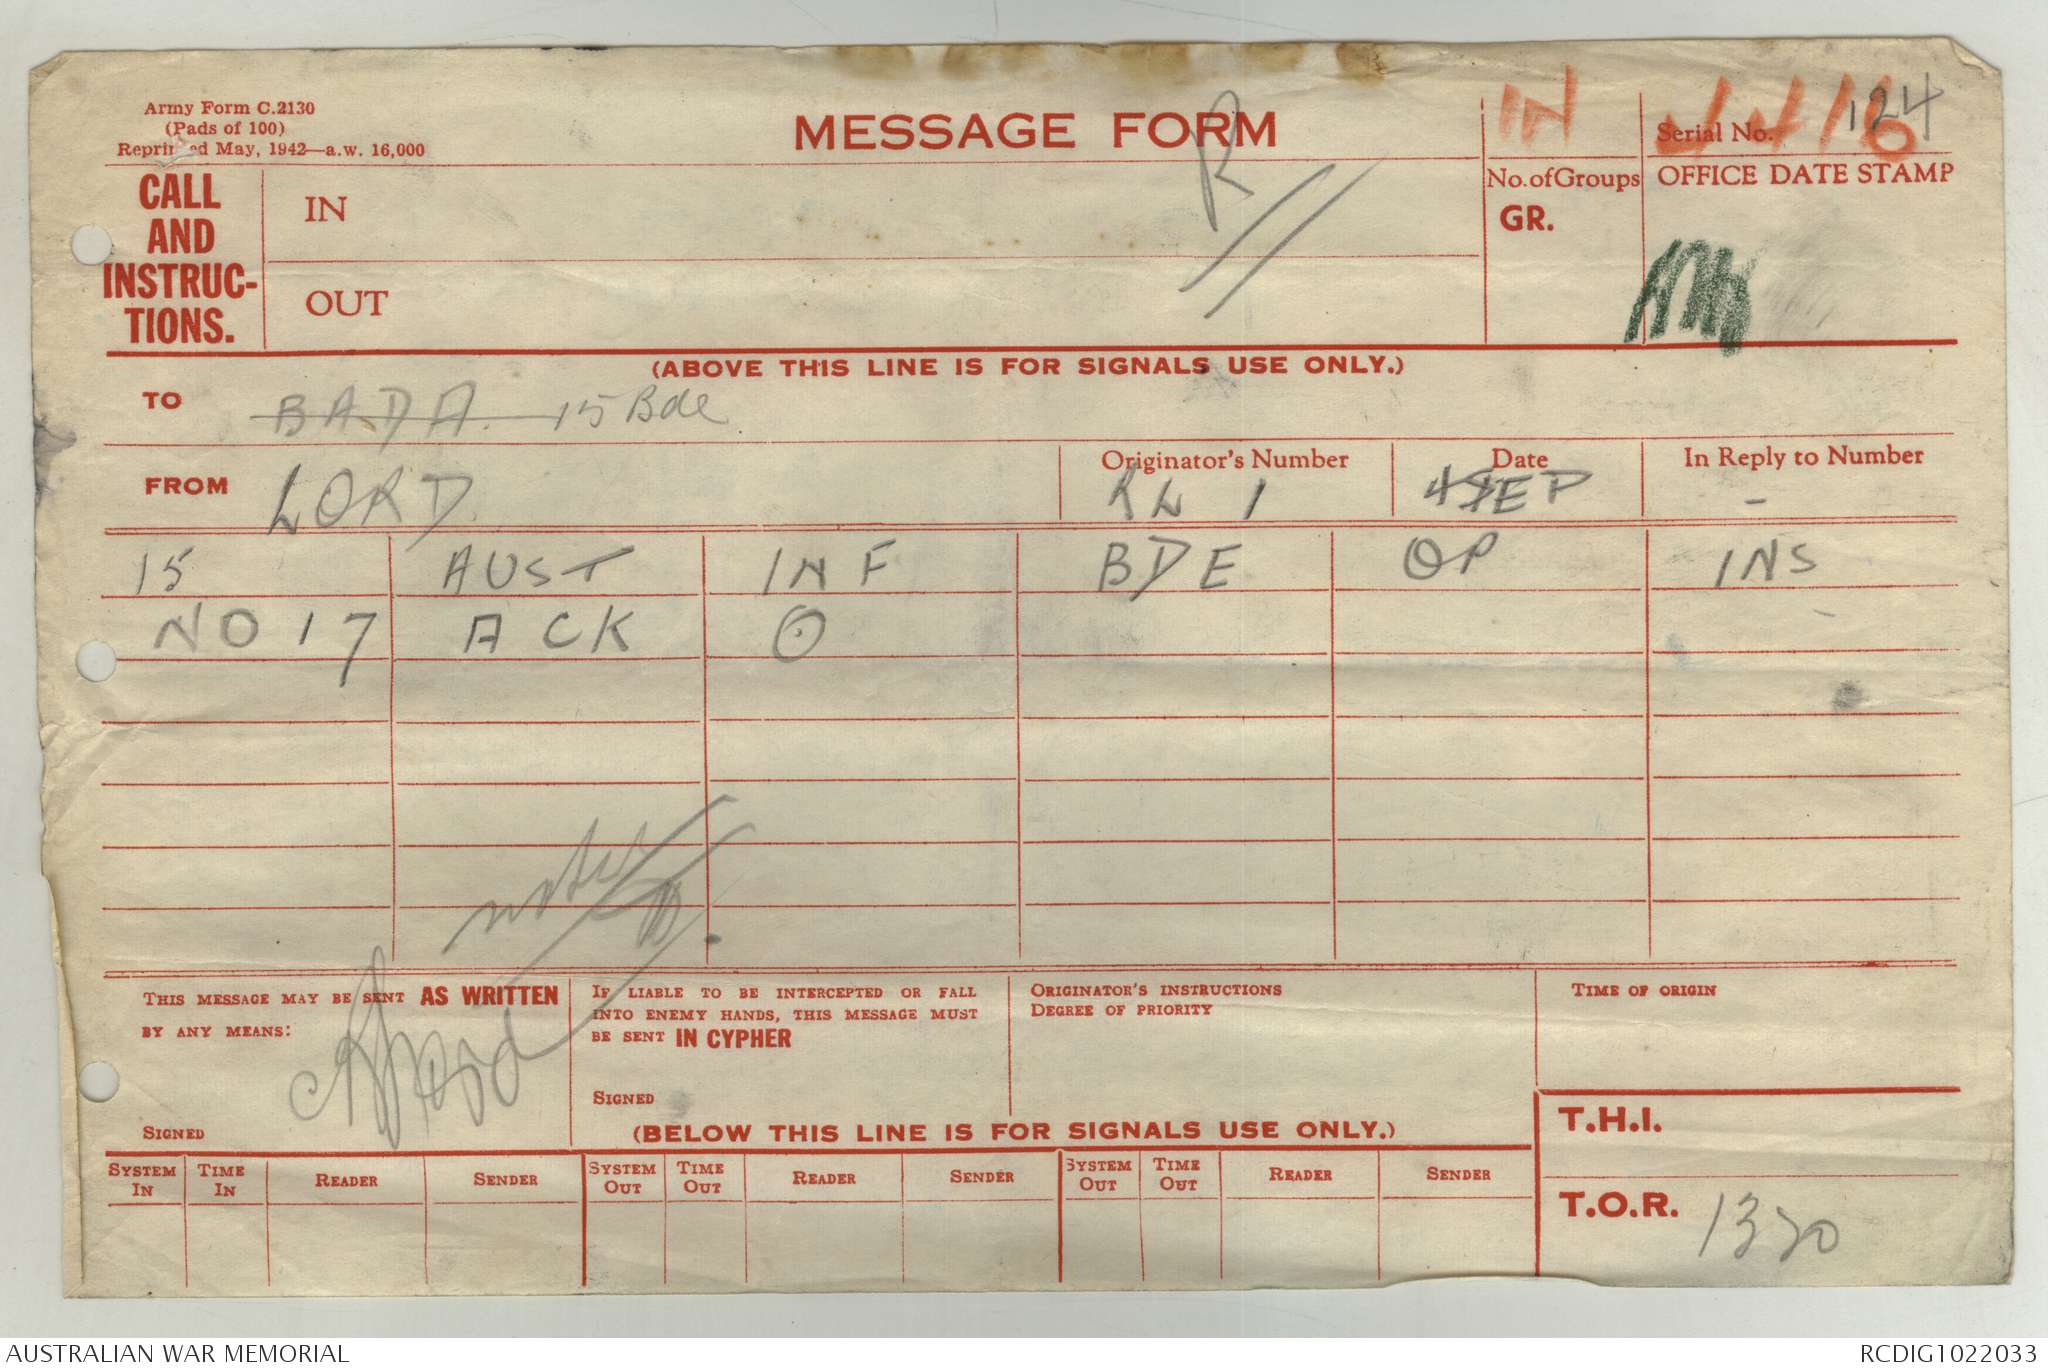 Army Form C.2130
(Pads of 100)
Reprinted May, 1942—a.w. 16,000
MESSAGE FORM
R
IN
Serial No. 124
CALL AND INSTRUC-TIONS.
IN
OUT
No. of Groups
GR.
OFFICE DATE STAMP
(ABOVE THIS LINE IS FOR SIGNALS USE ONLY.)
TO BADA. 15 Bde
FROM LORD.
Originator's Number
Date
In Reply to Number
RL 1 4 SEP -
15 AUST INF BDE OP INS
NO 17 ACK O
noted
THIS MESSAGE MAY BE SENT AS WRITTEN
BY ANY MEANS:
SIGNED
IF LIABLE TO BE INTERCEPTED OR FALL
INTO ENEMY HANDS, THIS MESSAGE MUST
BE SENT IN CYPHER
SIGNED
ORIGINATOR'S INSTRUCTIONS
DEGREE OF PRIORITY
TIME OF ORIGIN
(BELOW THIS LINE IS FOR SIGNALS USE ONLY.)
T.H.I.
SYSTEM IN TIME IN READER SENDER SYSTEM OUT TIME OUT READER SENDER SYSTEM OUT TIME OUT READER SENDER
T.O.R. 1320
AUSTRALIAN WAR MEMORIAL
RCDIG1022033